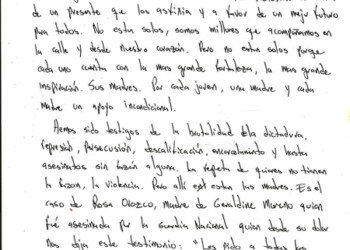 de un presente que los asfixia y a favor de un mejor futuro
para todos. No estan solos, somos millones que acompañamos en
la calle y desde nuestro corazón. Pero no estan solos porque
cada uno cuenta con la mas grande fortaleza, la mas grande
inspiración. Sus madres. Por cada joven, una madre y cada
madre un apoyo incondicional.
Hemos sido testigos de la brutalidad de la dictadura,
represión, persecusión, descalificación, encarcelamiento y hasta
asesinatos sin razón alguna. La repeta de quienes no tienen
la razon, la violencia. Pero alli est estan las madres. Es el
caso de Rosa Orozco, madre de Geraldine Moreno quien
fué asesinada por la Guardia Nacional quien desde su dolor
nos dijo este testimonio: "Les pido a todos los